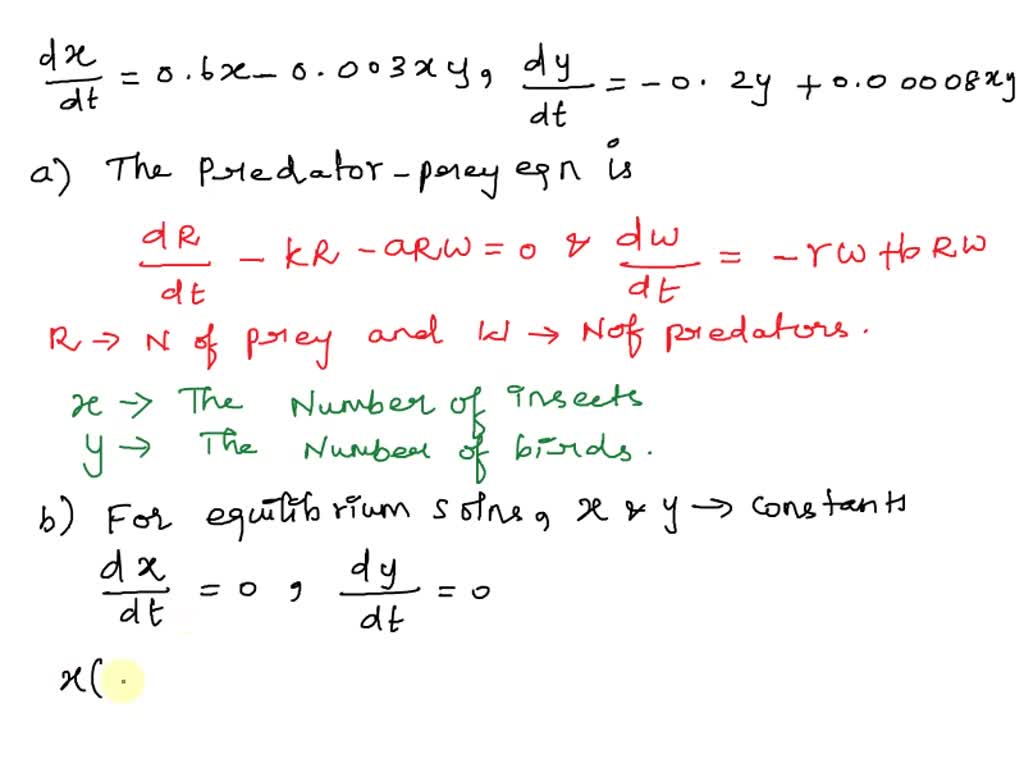 dx/dt = 0.6x - 0.003xy, dy/dt = -0.2y + 0.00008xy
a) The Predator-prey eqn is
dR/dt - kR - aRW = 0 & dW/dt = -rW + bRW
R → N of prey and W → N of predators.
x → The Number of insects
y → The Number of birds.
b) For equilibrium solns, x & y → constants
dx/dt = 0, dy/dt = 0
x(